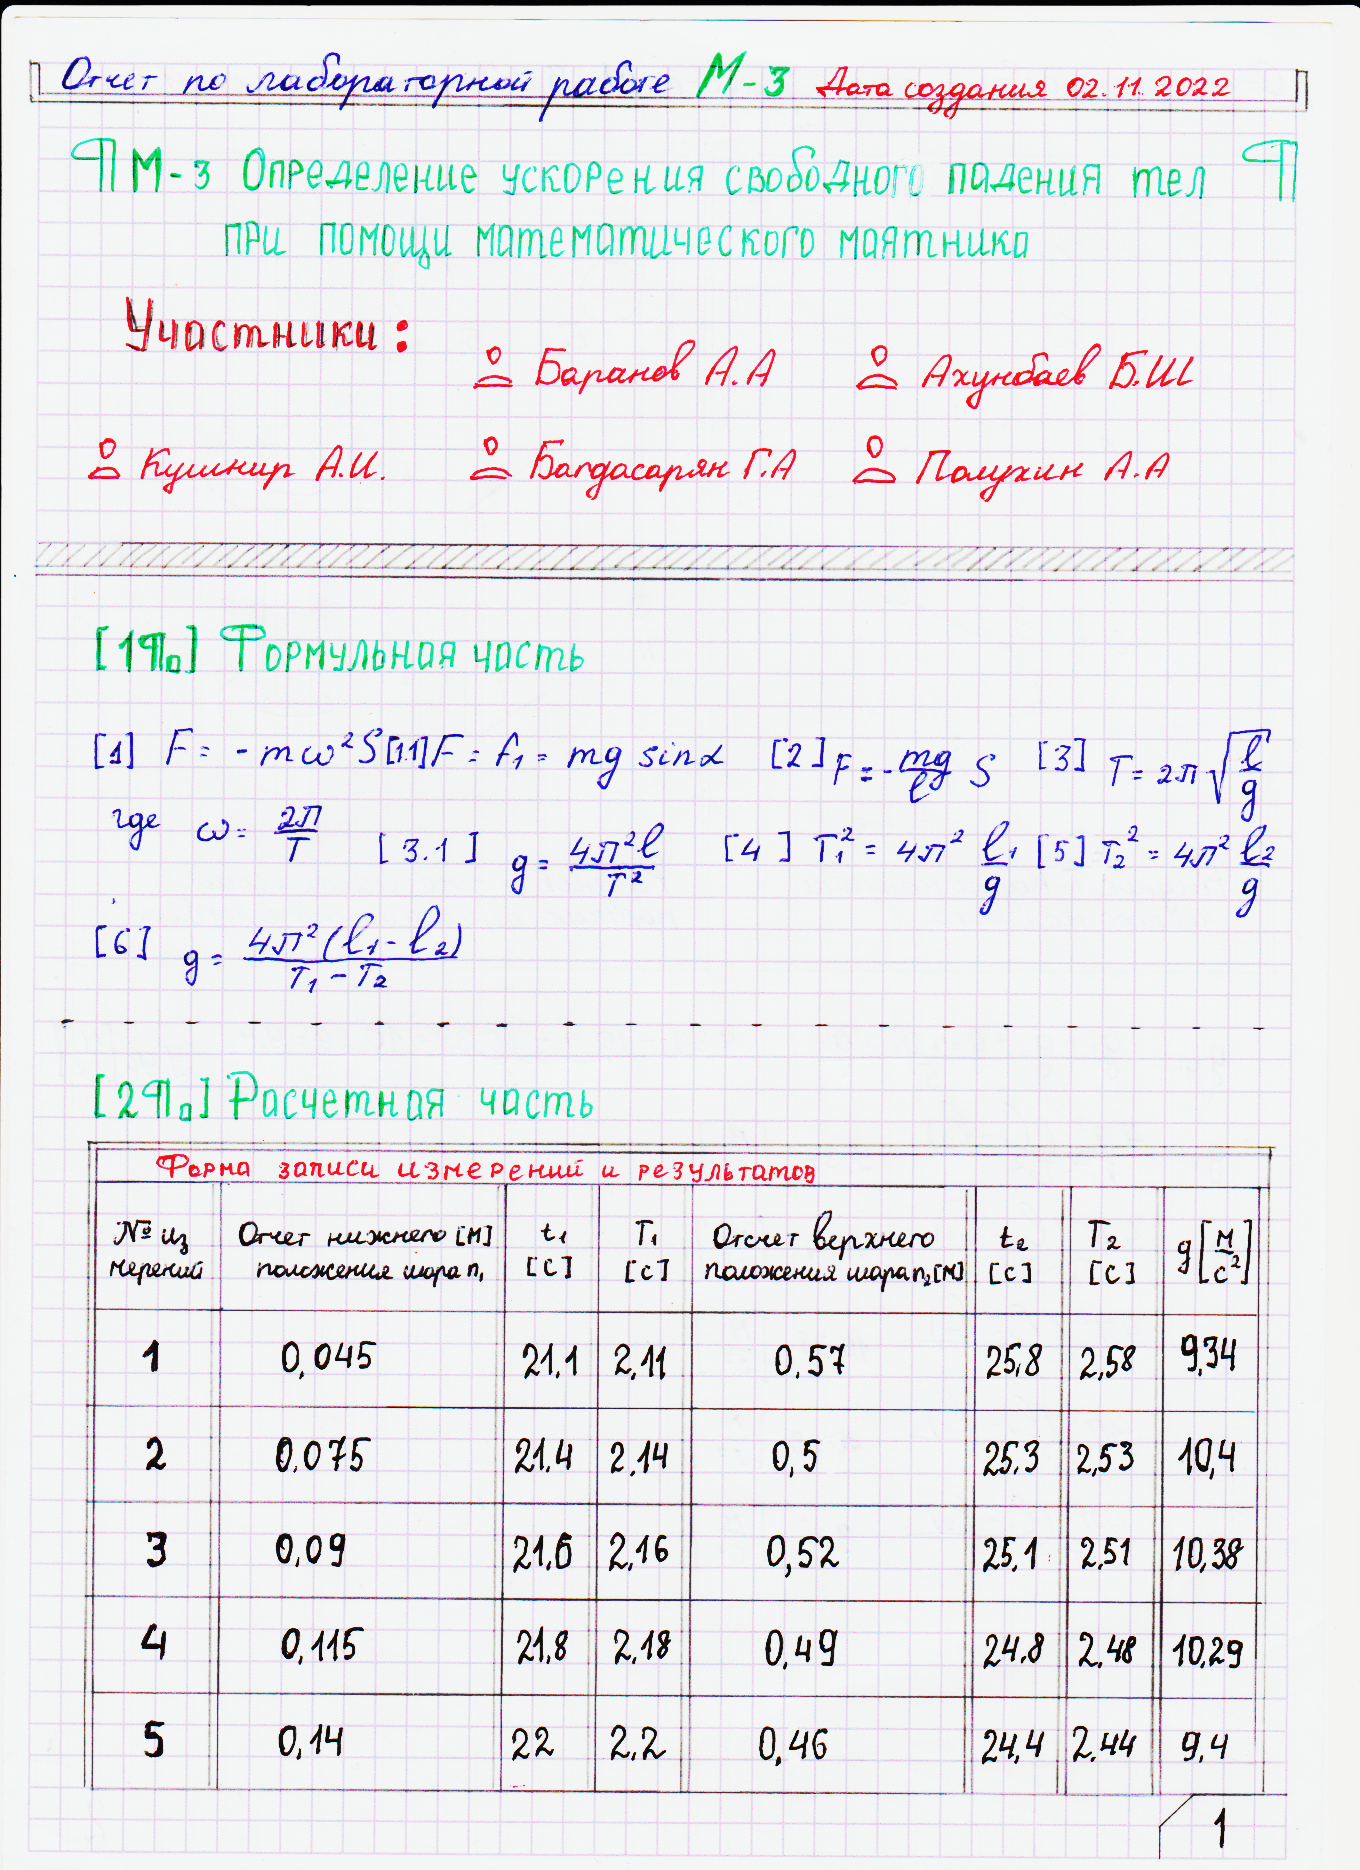 Отчет по лабораторной работе М-3 Дата создания 02.11.2022
¶ М-3 Определение ускорения свободного падения тел ¶
при помощи математического маятника
Участники:
Баранов А.А Ахунбаев Б.Ш
Кушнир А.И. Багдасарян Г.А Полухин А.А
[1¶.] Формульная часть
[1] F = -mω²S [1.1] F = f₁ = mg sinα [2] F = -mg/l S [3] T = 2π√(l/g)
где ω = 2π/T [3.1] g = 4π²l/T² [4] T₁² = 4π² l₁/g [5] T₂² = 4π² l₂/g
[6] g = 4π²(l₁ - l₂)/T₁ - T₂
[2¶.] Расчетная часть
Форма записи измерений и результатов
№ из мерений Отчет нижнего [м] положения шара n₁ t₁ [с] T₁ [с] Отсчет верхнего положения шара n₂ [м] t₂ [с] T₂ [с] g [м/с²]
1 0,045 21,1 2,11 0,57 25,8 2,58 9,34
2 0,075 21,4 2,14 0,5 25,3 2,53 10,4
3 0,09 21,6 2,16 0,52 25,1 2,51 10,38
4 0,115 21,8 2,18 0,49 24,8 2,48 10,29
5 0,14 22 2,2 0,46 24,4 2,44 9,4
1